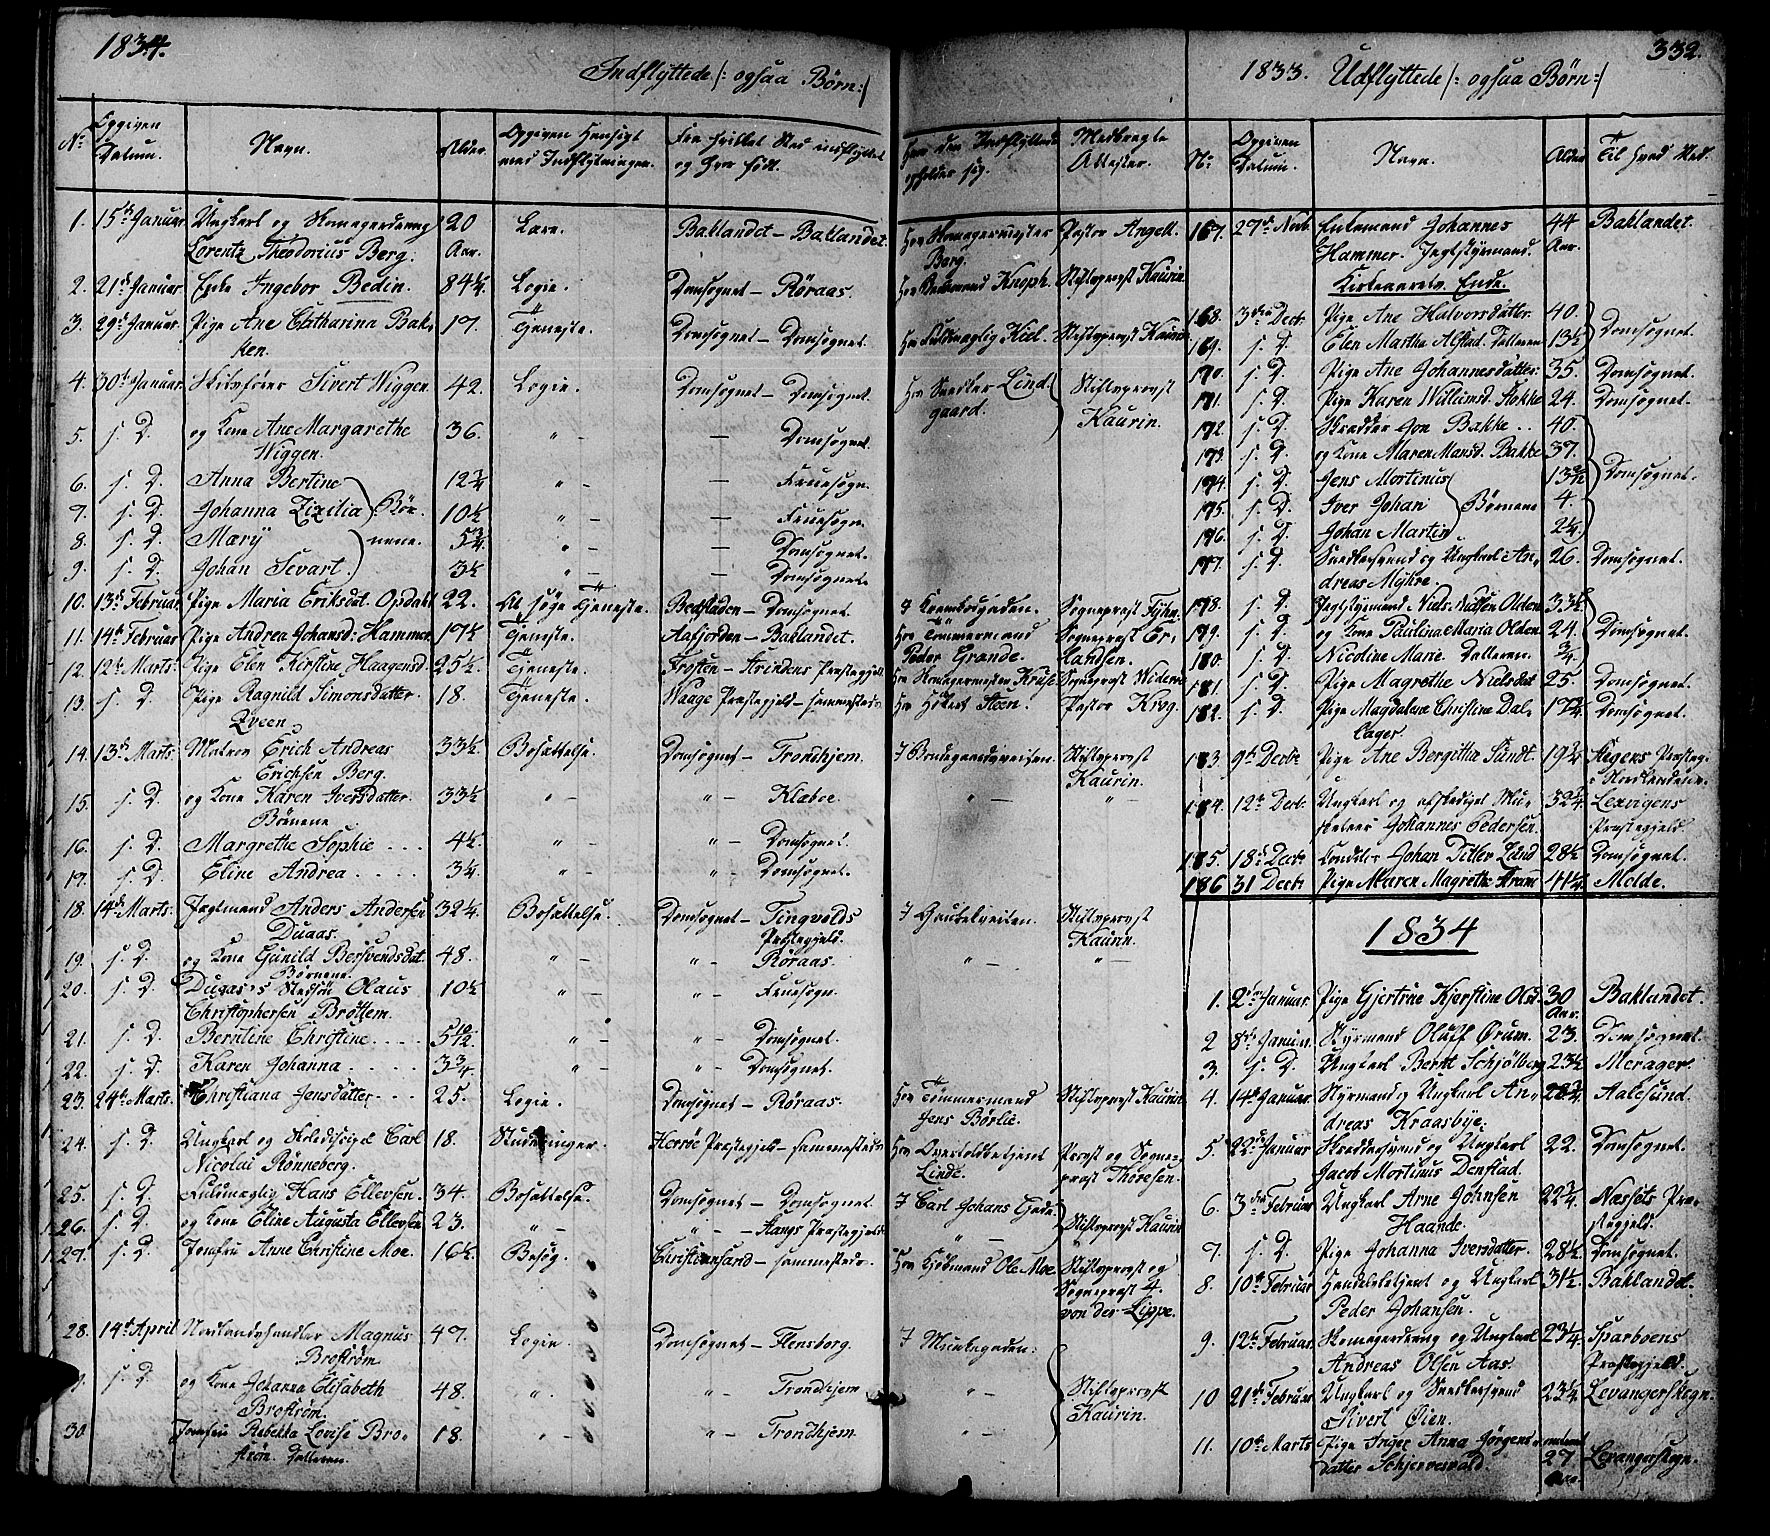 1834.
Indflyttede /: ogsaa Børn :/
No
Opgiven Datum.
Navn.
Alder.
Opgiven Hensigt med Indflytningen.
Fra hvilket Sted indflyttet og hvor født.
Hvor den Indflyttede opholder sig.
Medbragte Attester.
1. 15de Januar. Ungkarl og Skomagerdreng 20 Lære. Baklandet - Baklandet. Hos Skomagermester Pastor Angell.
Lorentz Theodorius Berg. Aar. Berg.
2. 21de Januar Enke Ingebor Bedin. 84½. Logie. Domsognet - Røraas. Knoph. Stiftsprovst Kaurin.
3. 29de Januar. Pige Ane Catharina Bak- 17. Tjeneste. Domsognet - Domsognet. Hos Fuldmægtig Kiel. Stiftsprovst Kaurin
ken.
4. 30te Januar. Skibsfører Sivert Wiggen. 42. Logie. Domsognet - Domsognet. Hos Snedker Lind- Stiftsprovst
gaard. Kaurin.
5. s. D. og Kone Ane Margarethe 36. " - - Domsognet.
Wiggen.
6. s. D. Anna Bertine 12¾ " - - Fruesogn.
7. s. D. Johanna Zixilia Bør- 10½ " - - Fruesogn.
8. s. D. Mary nene. 5¾. " - - Domsognet.
9. s. D. Johan Sevart. 3½ " - - Domsognet.
10. 13de Februar. Pige Maria Eriksdat. Opdahl 22. At søge Tjeneste. - Domsognet. i Krambodgaden. Sogneprest
11. 14de Februar Pige Andrea Johansd. Hammer. 17½ Tjeneste. Aafjorden - Baklandet. Hos Tømmermand Sogneprest Er-
Peder Grande. landsen.
12. 12te Marts. Pige Elen Kirstine Haagensd. 25½. Tjeneste. Frosten - Strindens Præstegjeld. Hos Skomagermester Kruse. Sogneprest
13. s. D. Pige Ragnild Simonsdatter 18. Tjeneste. Waage Præstegjeld - sammesteds. Steen. Pastor Krog.
Qveen
14. 13de Marts. Matros Erich Andreas 33½. Bosættelse. Domsognet - Trondhjem. Stiftsprovst
Erichsen Berg. Kaurin.
15. s. D. og Kone Karen Iversdatter. 33½ " - " - Klæboe. " - " -
Børnene
16. s. D. Margrethe Sophie ... 4½ " - " - Domsognet.
17. s. D. Eline Andrea .... 3¼ " - " - Domsognet.
18. 14de Marts. Jægtmand Anders Andersen 32¼. Bosættelse. Domsognet - Tingvolds Stiftsprovst
Duaas. Præstegjeld. Kaurin.
19. s. D. og Kone Gunild Bersvendsdat. 48. " - " - Røraas. " - " -
Børnene.
20. s. D. Stedsøn Olaus 10½ " - " - Fruesogn.
Christophersen Brøttem.
21. s. D. Berntine Christine .... 5 10/12 " - " - Domsognet.
22. s. D. Karen Johanna ..... 3¾ " - " - Domsognet.
23. 24de Marts. Christiana Jensdatter ... 25. Logie. Domsognet - Røraas. Hos Tømmermand Stiftsprovst Kaurin
Jens Børlie.
24. s. D. Ungkarl og Carl 18. Studeringer. Herrøe Præstegjeld - sammesteds. Hos Overtoldbetjent Provst og Sogne-
Nicolai Rønneberg. Linde. prest Thoresen.
25. s. D. Fuldmægtig Hans Ellevsen. 34. Bosættelse. Domsognet - Domsognet. i Carl Johans Gade.
26. s. D. og Kone Eline Augusta Ellevsen 23. " - " - Stangs Præstegjeld. " - Stiftsprovst Kaurin
27. s. D. Jomfru Anne Christine Moe. 16½. Besøg. Christiansand - sammesteds. Hos Kjøbmand Ole Moe. Stiftsprovst og
Sogneprest
von der Lippe.
28. 14de April Nordlandshandler Magnus 47. Logie. Domsognet - Flensborg. i Munkegaden.
Brostrøm
9. s. D. og Kone Johanna Elisabeth 48. " " - Trondhjem " - Stiftsprovst
Brostrøm. Kaurin.
30 Jomfru Rebekka Lovise Bro- 18. " - " - Trondhjem " -
strøm. Datteren.
332.
1833. Udflyttede /: ogsaa Børn :/
No
Opgiven Datum.
Navn.
Alder
Til hvad Sted.
167. 27de Novb. Enkemand Johannes 44 Baklandet.
Hammer. Jægtstyrmand. Aar.
Kirkeaarets Ende.
168. 3die Decbr. Pige Ane Halvorsdatter. 40.
169. s. D. Elen Martha Alstad. Datteren 13½ Domsognet.
170. s. D. Pige Ane Johannesdatter. 35. Domsognet.
171. s. D. Pige Karen Willumsd. Stokke 24. Domsognet.
172. s. D. Skrædder Jon Bakke .. 40.
173. s. D. og Kone Maren Monsd. Bakke 37.
174. s. D. Jens Mortinus 13 Domsognet.
175. s. D. Iver Johan Børnene 4.
176. s. D. Johan Martin 2¼
177. s. D. Snedkersvend og Ungkarl An- 26. Domsognet.
dreas Myhre.
178. s. D. Jægtstyrmand Niels Nielsen Olden 33½
179. s. D. og Kone Paulina Maria Olden 24. Domsognet.
180. s. D. Nicoline Marie. Datteren ¾
181. s. D. Pige Magrethe Nielsdat. 25. Domsognet.
182. s. D. Pige Magdalene Christine Dal- 17¾ Domsognet.
lager.
183 9de Decbr Pige Ane Bergitha Sundt. 19¾ Stegens Præsteg.
i Nordlandene.
184. 12te Decbr. Ungkarl og afskediget Mu- 32¾ Lexvigens
sketeer Johannes Pedersen. Præstegjeld.
185. 18de Decbr Johan Ditler Lund 28½ Domsognet.
186 31 Decbr. Pige Maren Magrethe Strøm 41½ Molde.
1834
1. 2den Januar. Pige Gjertrue Kjerstine Olsd. 30 Baklandet.
Aar.
2 8de Januar. Styrmand Oluff Ørum. 23. Domsognet.
3. s. D. Ungkarl Berthe Schjølberg 23½ Merager.
4. 14de Januar. Styrmand og Ungkarl An- 28¾ Aalesund.
dreas Kraasbye.
5. 22de Januar Skræddersvend og Ungkarl 22. Domsognet.
Jacob Mortinus Denstad.
6. 3die Februar Ungkarl Arne Johnsen 22¾ Næssets Præ-
Haande. stegjeld.
7. s. D. Pige Johanna Iversdatter. 28½. Domsognet.
8. 10de Februar Handelsbetjent og Ungkarl 31½. Baklandet.
Peder Johansen.
9. 12te Februar. Skomagerdreng og Ungkarl 23¼ Sparboens
Andreas Olsen Aas. Præstegjeld.
10 21de Februar Ungkarl og Snedkersvend 23¼ Levangerskogn.
Sivert Øien.
11. 10de Marts. Pige Inger Anna Jørgens- omtrent
datter Schjerveswald. 27 Levangerskogn.
Aar.